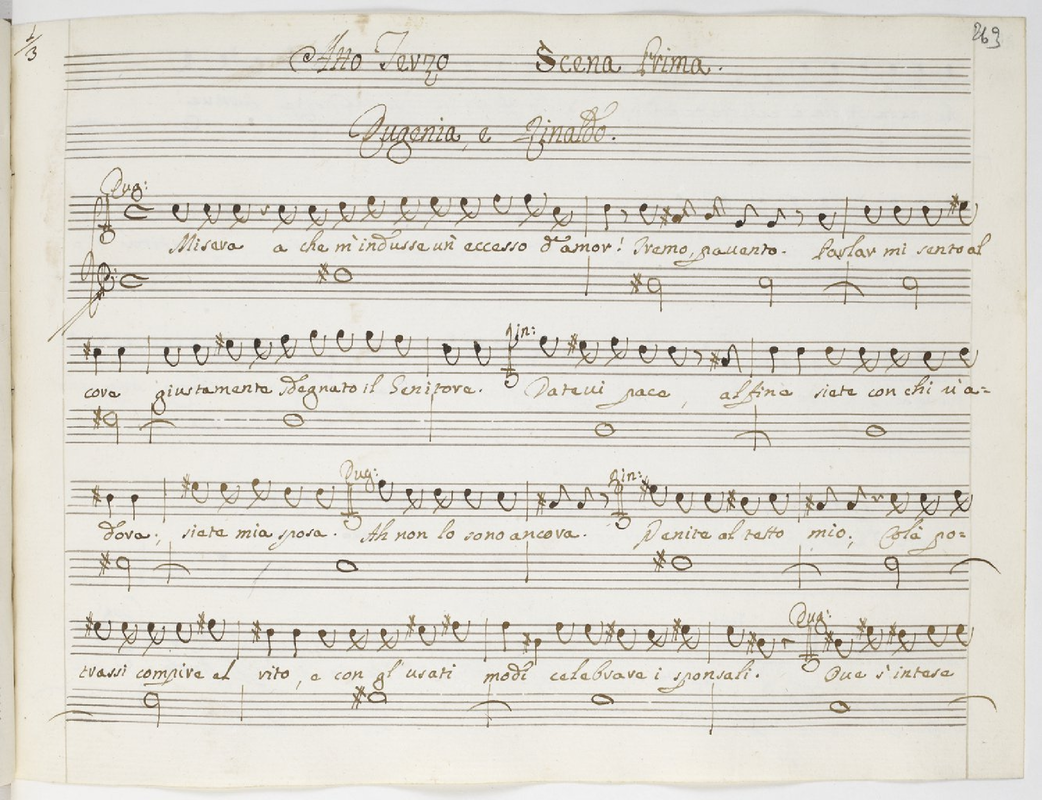 1/3
263
Atto Terzo Scena Prima.
Eugenia, e Rinaldo.
Eug:
Misera a che m'indusse un eccesso d'amor! Tremo, pauento. Parlar mi sento al
Rin:
core giustamente sdegnato il Genitore. Dateui pace, al fine siete con chi u'a=
Eug: Rin:
dora; siete mia sposa. Ah non lo sono ancora. Venite al tetto mio; Colà po=
Eug:
trassi compire al rito, e con gl'usati modi celebrare i sponsali. Oue s'intese